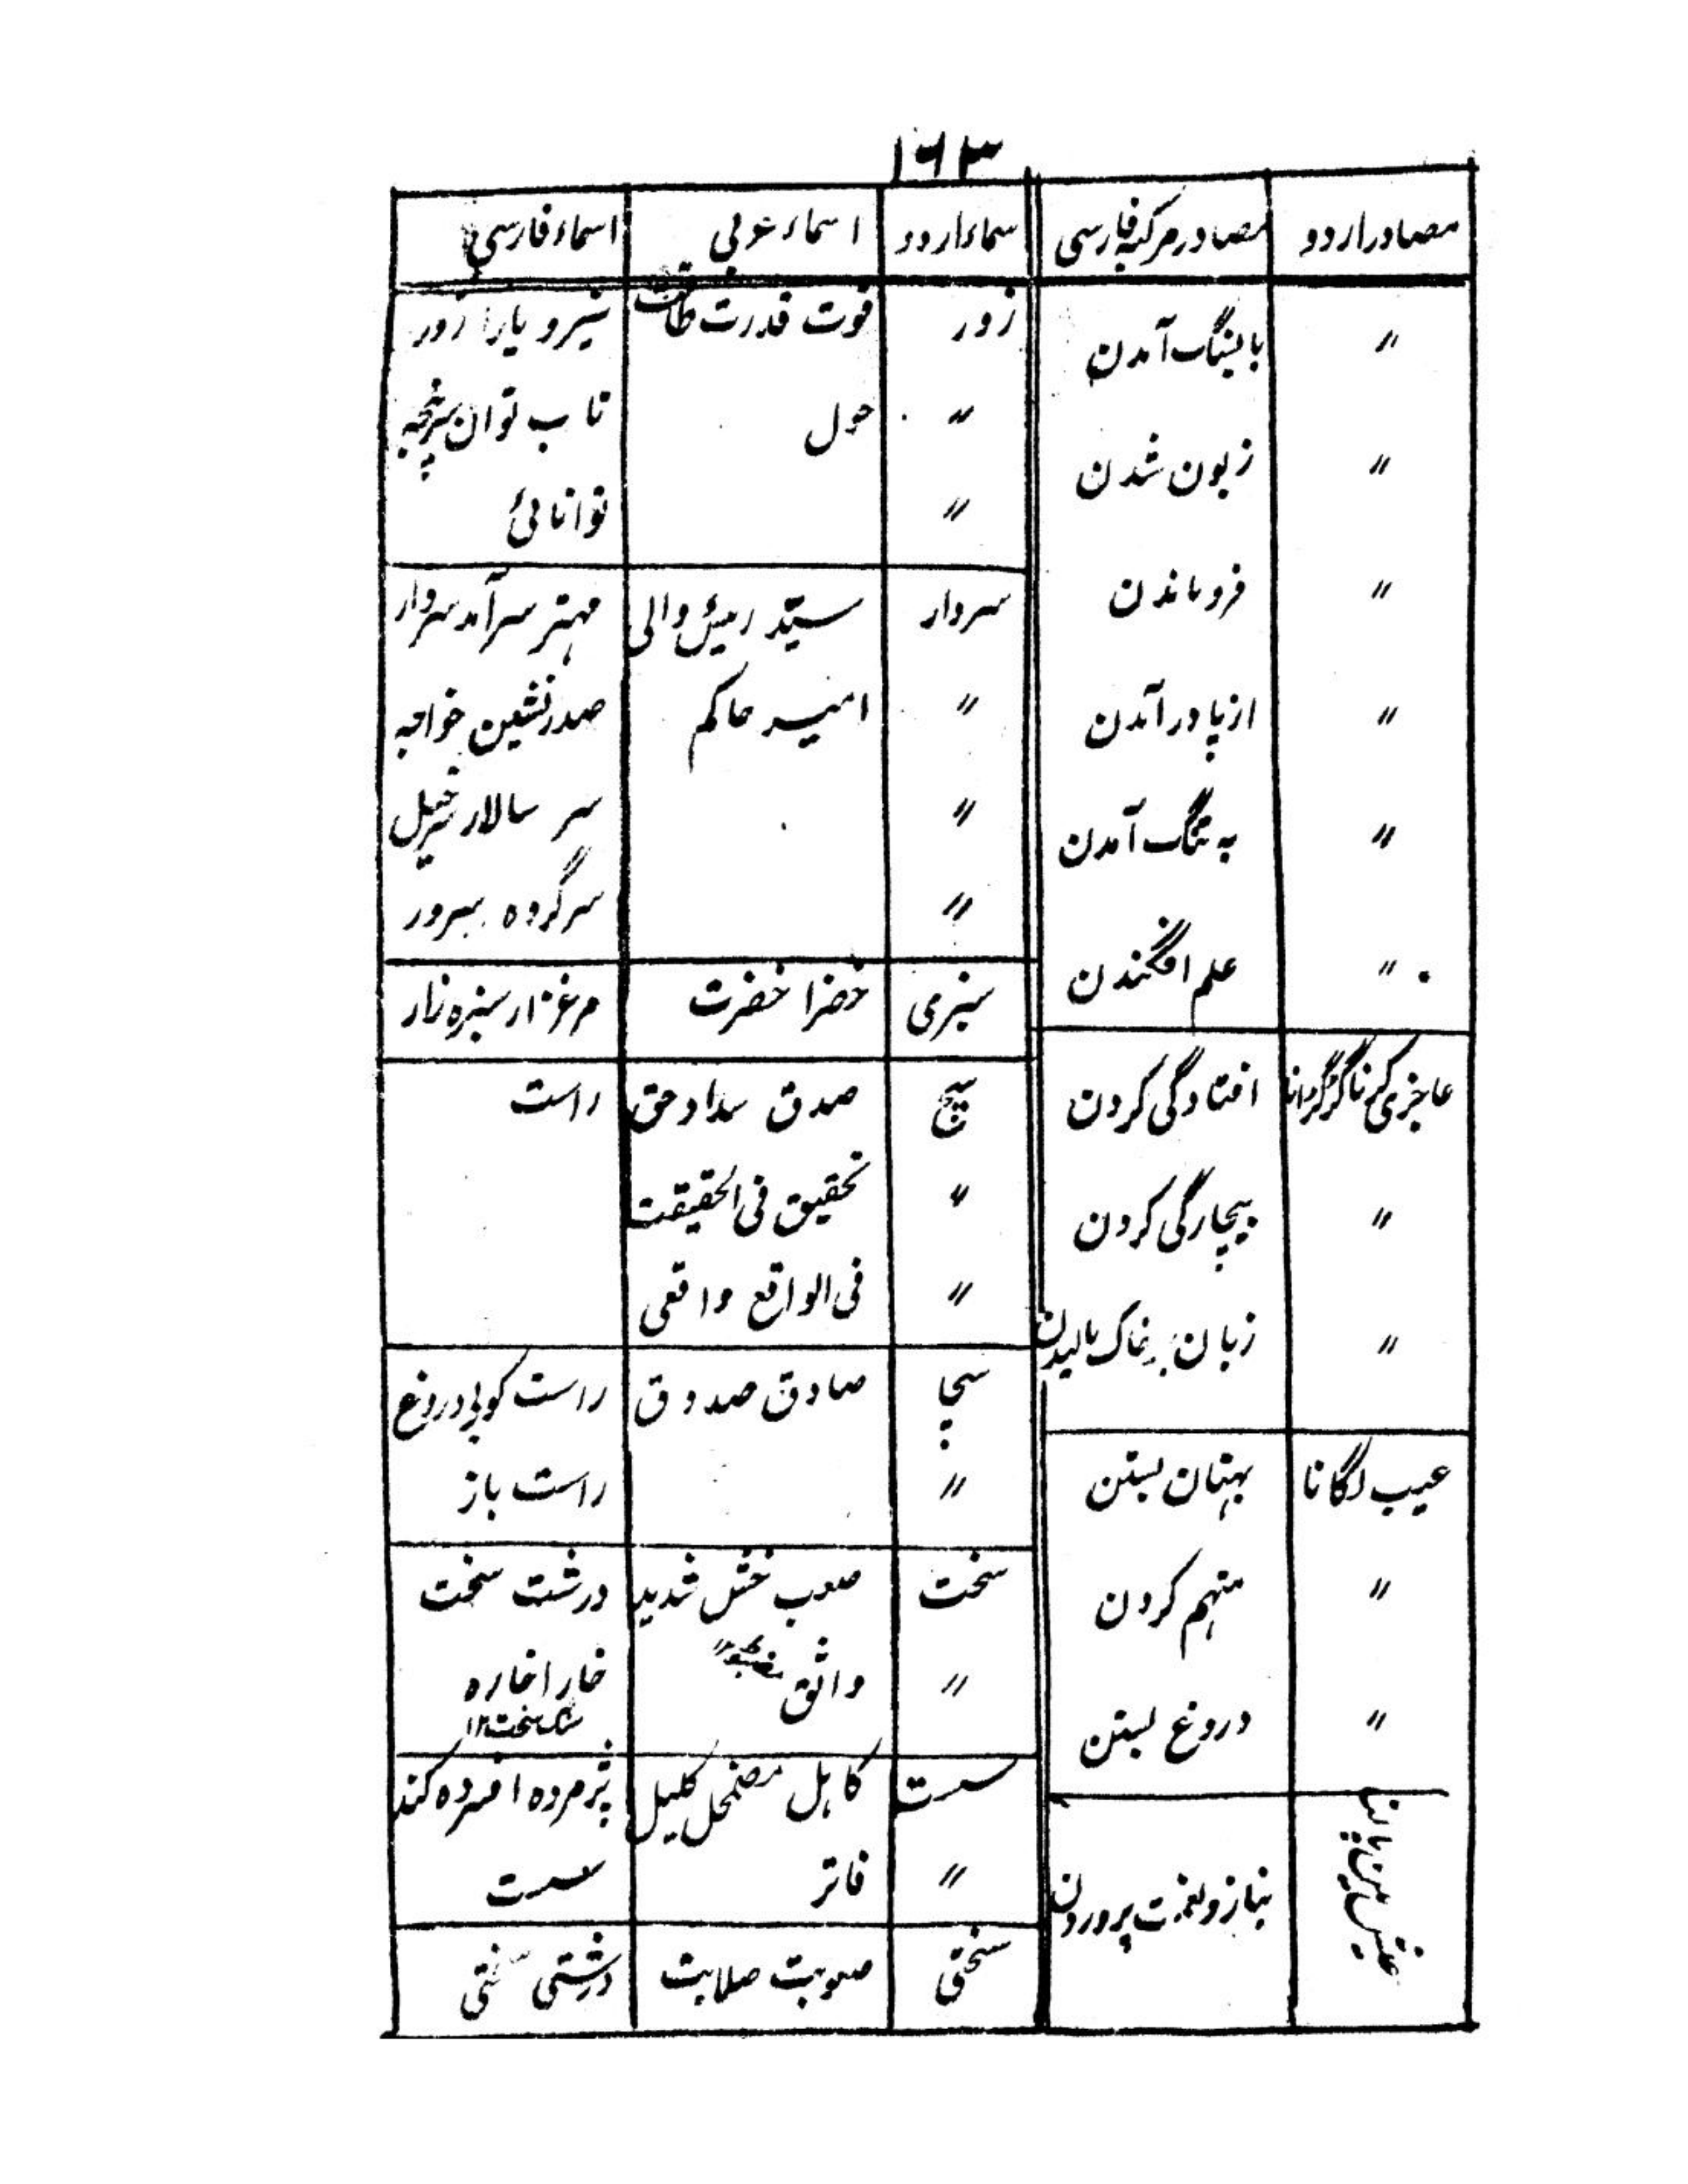 ۱۶۳
مصادر اردو | مصادر مرکبہ فارسی
〃 | با بتنگ آمدن
〃 | زبون شدن
〃 | فروماندن
〃 | از پا در آمدن
〃 | بہ تنگ آمدن
〃 | علم افگندن
عاجزی کرنا گڑگڑانا | افتادگی کردن
〃 | بیچارگی کردن
〃 | زبان بخاک مالیدن
عیب لگانا | بہتان بستن
〃 | متہم کردن
〃 | دروغ بستن
عیش میں پالنا | بناز و نعمت پروردن
اسماء اردو | اسماء عربی | اسماء فارسی
زور | قوت قدرت طاقت | نیرو یارا زور
〃 | حول | تاب توان سرپنجہ
〃 | | توانائی
سردار | سیّد رئیس والی | مہتر سرآمد سردار
〃 | امیر حاکم | صدرنشین خواجہ
〃 | | سر سالار سرخیل
〃 | | سرگروہ سرور
سبزی | خضرا خضرت | مرغزار سبزہ زار
سچ | صدق سداد حق | راست
〃 | تحقیق فی الحقیقت
〃 | فی الواقع واقعی
سچا | صادق صدوق | راست گو بی دروغ
〃 | | راست باز
سخت | صعب خشن شدید | درشت سخت
〃 | واثق مضبوط | خارا خارہ
سنگ سخت ۱۲
سست | کاہل مضمحل کلیل | پژمردہ افسردہ کند
〃 | فاتر | سست
سختی | صعوبت صلابت | درشتی سختی